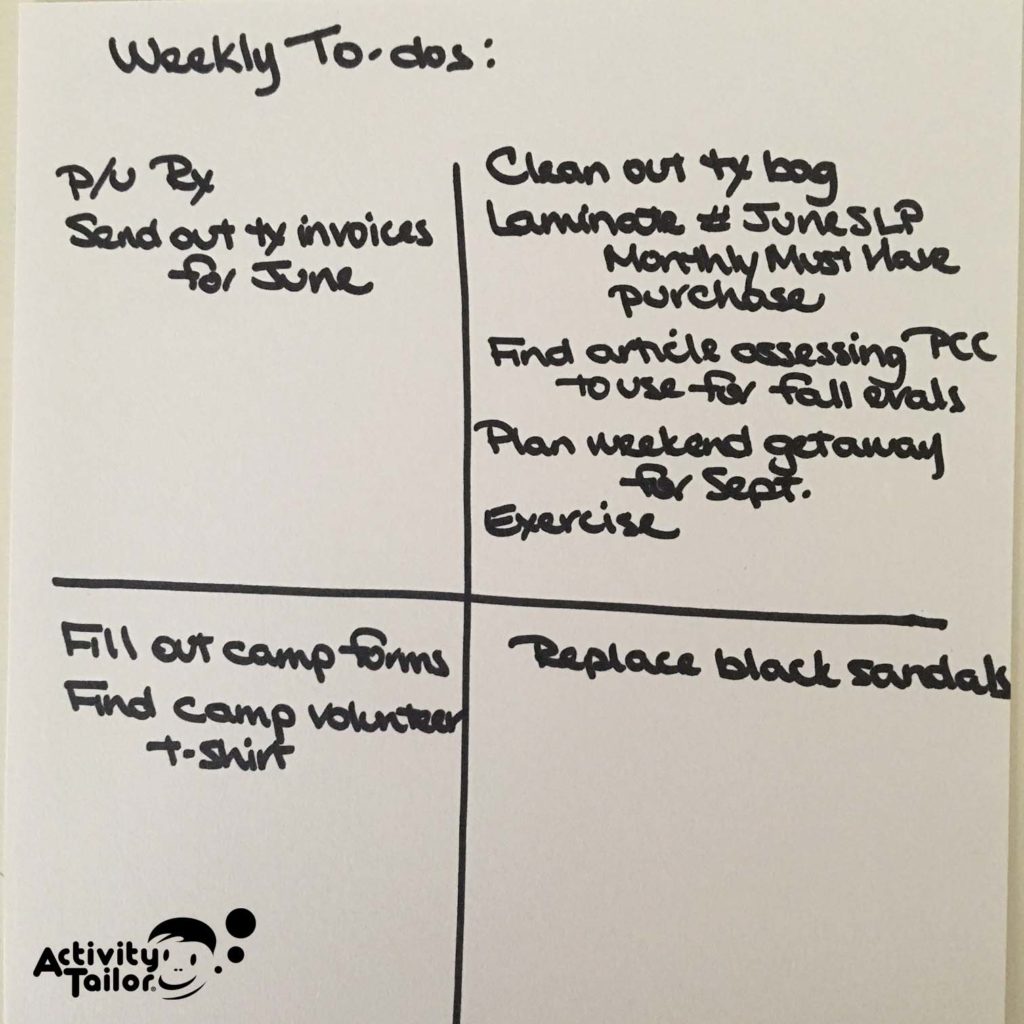 Weekly To-dos:
P/U Rx
Send out tx invoices
for June
Clean out tx bag
Laminate # JuneSLP
Monthly Must Have
purchase
Find article assessing PCC
to use for fall evals
Plan weekend getaway
for Sept.
Exercise
Fill out camp forms
Find camp volunteer
t-shirt
Replace black sandals
Activity
Tailor®